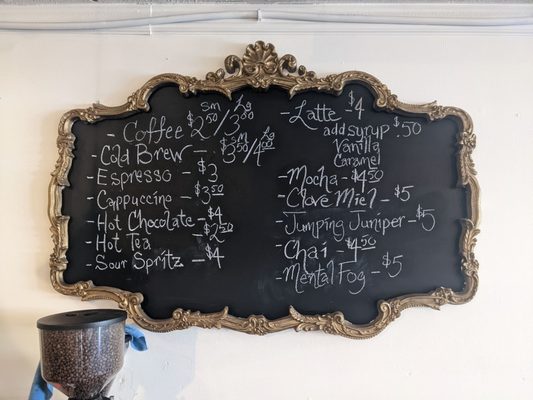 sm Lg
- Coffee $2⁵⁰/3⁰⁰
- Cold Brew - $3⁵⁰/4⁰⁰ sm Lg
- Espresso - $3
- Cappuccino - $3⁵⁰
- Hot Chocolate - $4
- Hot Tea - $2⁵⁰
- Sour Spritz - $4
- Latte $4
add syrup $.50
Vanilla
Caramel
- Mocha - $4⁵⁰
- Clove Miel - $5
- Jumping Juniper - $5
- Chai - $4⁵⁰
- Mental Fog - $5